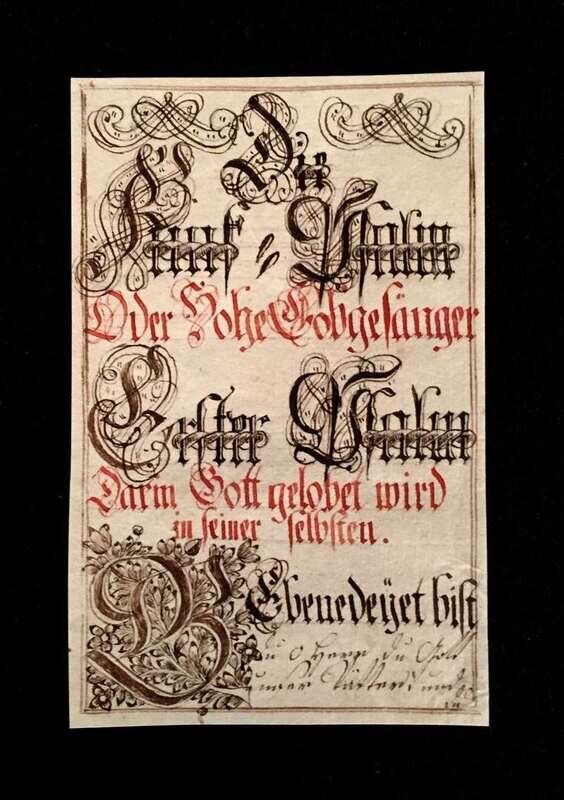 Die
Fünf Psalm
Oder Hohe Lobgesänger
Erster Psalm
Darin Gott gelobet wird
in seiner selbsten.
GEbenedeÿet bist
du o Herr du Gott
unser Vätter, und